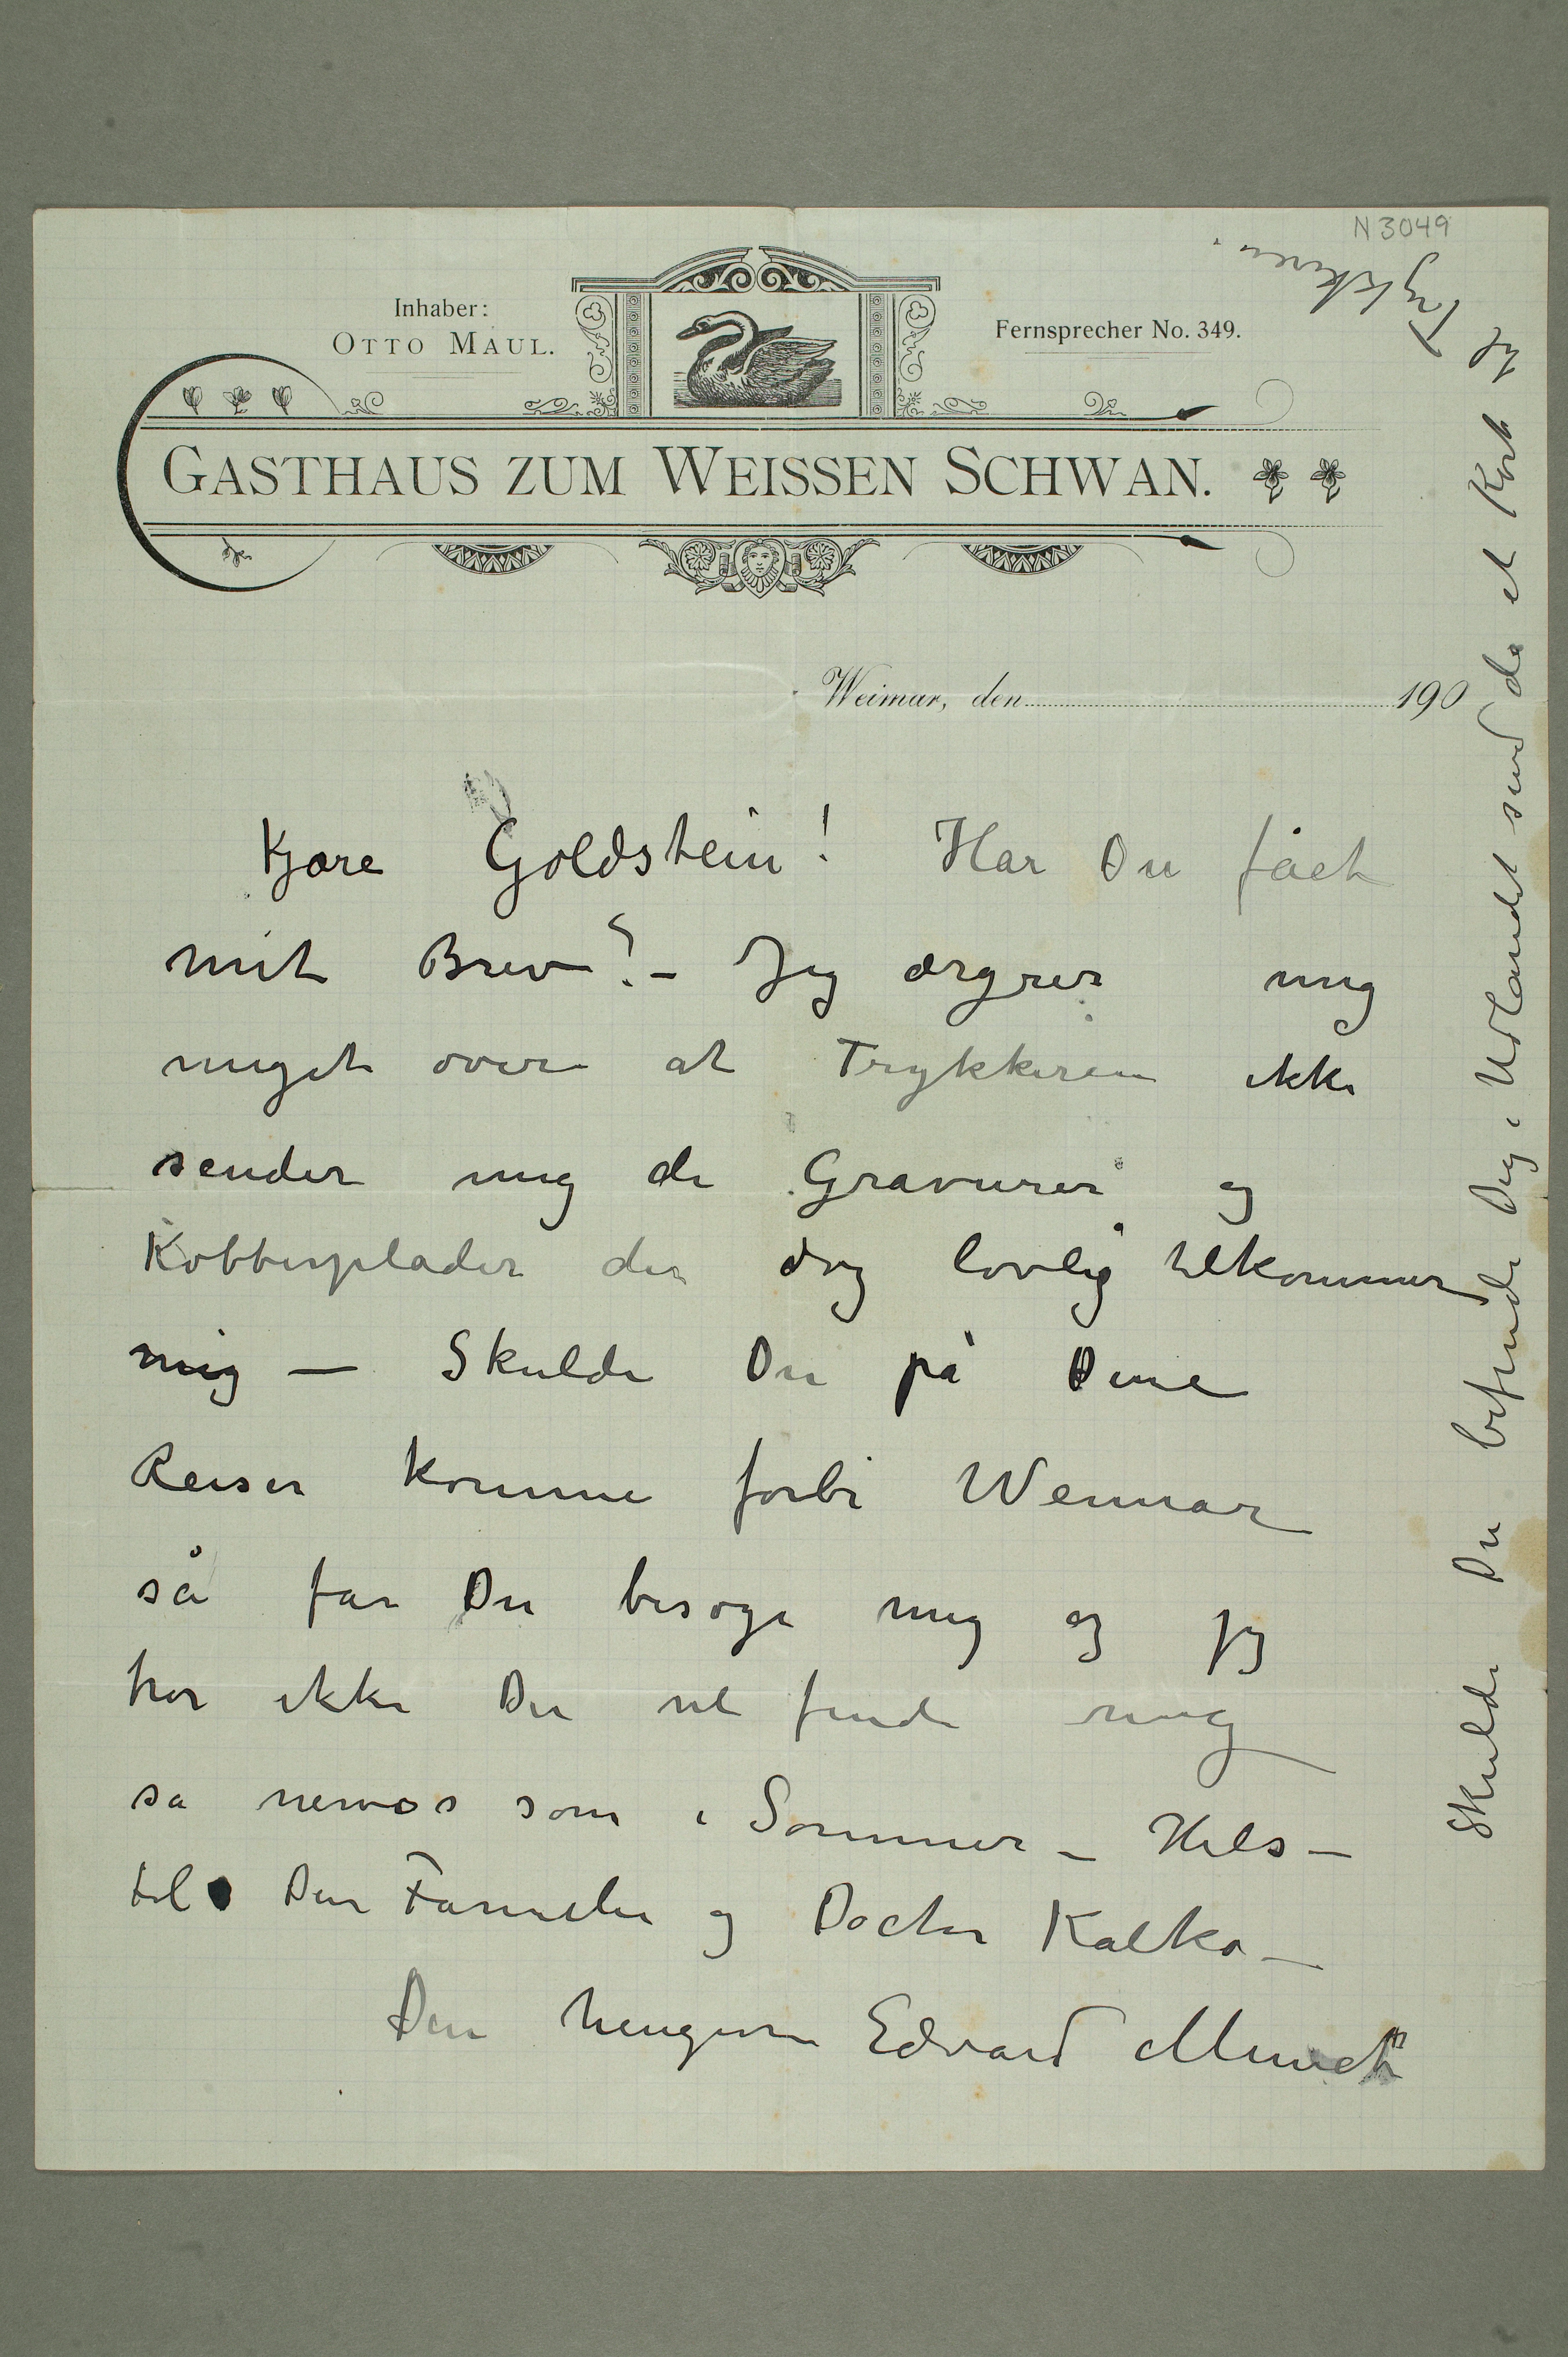 N 3049
Inhaber:
OTTO MAUL.
Fernsprecher No. 349.
GASTHAUS ZUM WEISSEN SCHWAN.
Weimar, den 190
Kjære Goldstein! Har Du fået
mit Brev? – Jeg ærgrer mig
meget over at Trykkeren ikke
sender mig de Gravurer og
Kobberplader der dog lovlig tilkommer
mig — Skulde Du på Dine
Reiser komme forbi Weimar
så far Du besøge mig og jeg
tror ikke Du vil finde mig
sa nervøs som i Sommer – Hils –
til Din Familie og Doctor Kalko –
Din hengivne Edvard Munch
Skulde Du befinde Dig i Udlandet send da et Kort til
Trykkeren.